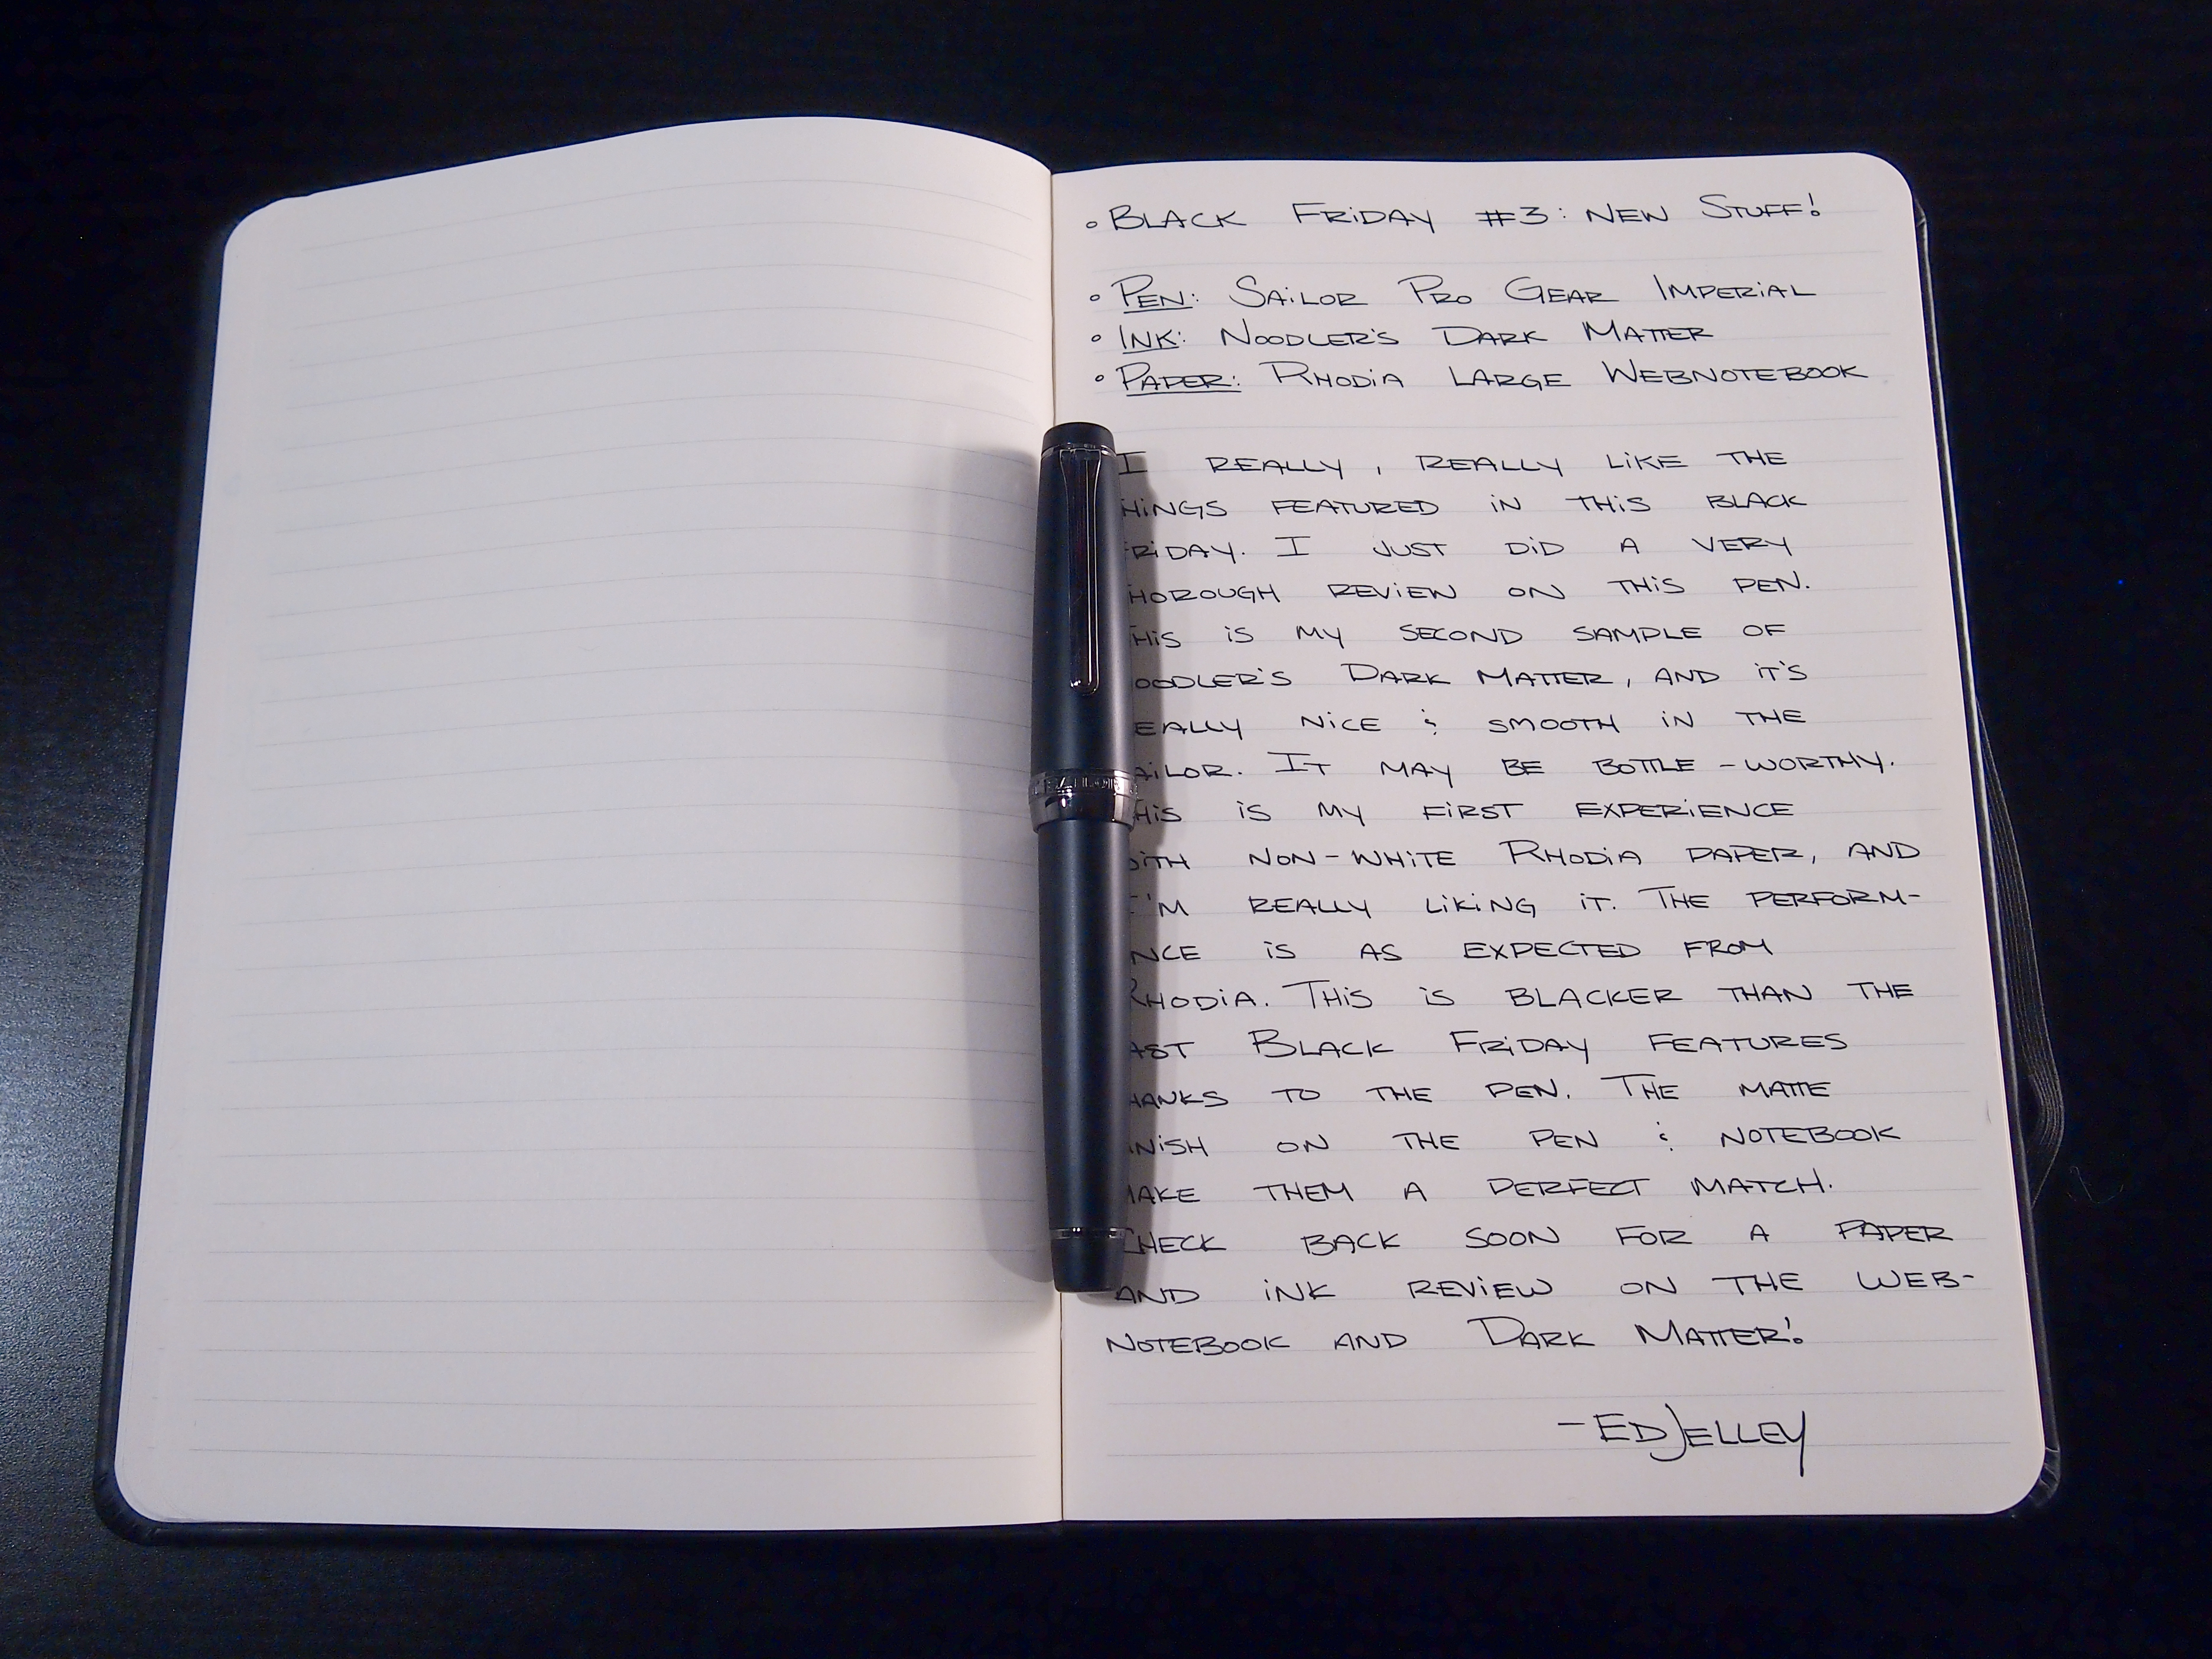 ° BLACK FRIDAY #3: NEW STUFF!
° PEN: SAILOR PRO GEAR IMPERIAL
° INK: NOODLER'S DARK MATTER
° PAPER: RHODIA LARGE WEBNOTEBOOK
I REALLY, REALLY LIKE THE
HINGS FEATURED IN THIS BLACK
RIDAY. I JUST DID A VERY
HOROUGH REVIEW ON THIS PEN.
HIS IS MY SECOND SAMPLE OF
OODLER'S DARK MATTER, AND IT'S
EALLY NICE & SMOOTH IN THE
AILOR. IT MAY BE BOTTLE-WORTHY.
HIS IS MY FIRST EXPERIENCE
ITH NON-WHITE RHODIA PAPER, AND
I'M REALLY LIKING IT. THE PERFORM-
NCE IS AS EXPECTED FROM
RHODIA. THIS IS BLACKER THAN THE
AST BLACK FRIDAY FEATURES
HANKS TO THE PEN. THE MATTE
NISH ON THE PEN & NOTEBOOK
MAKE THEM A PERFECT MATCH.
CHECK BACK SOON FOR A PAPER
AND INK REVIEW ON THE WEB-
NOTEBOOK AND DARK MATTER!
-ED JELLEY
SAILOR